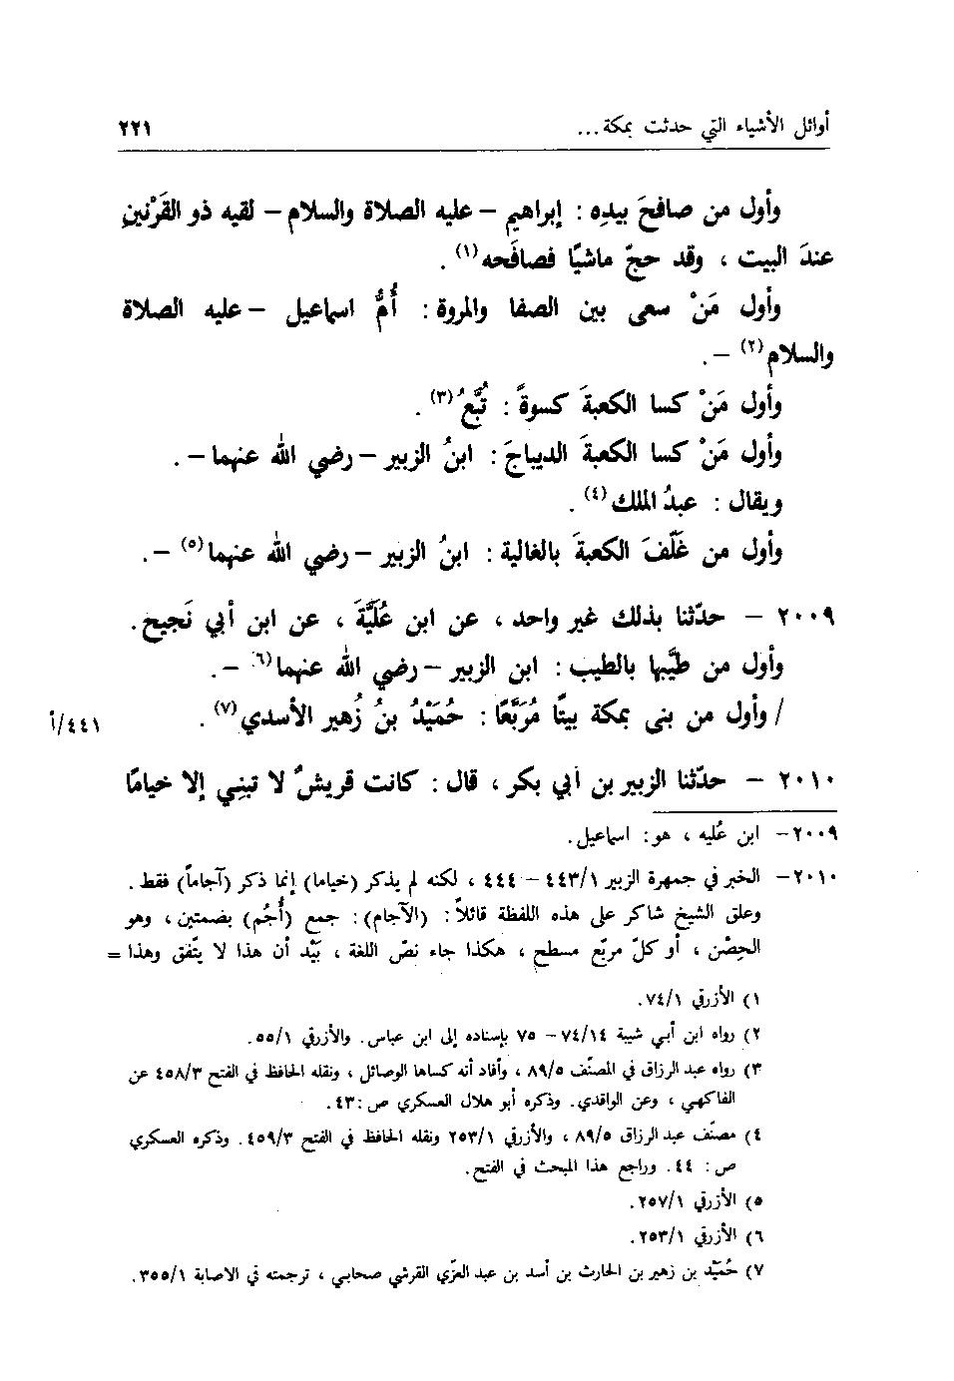 أوائل الأشياء التي حدثت بمكة ...
٢٢١
وأول من صافحَ بيدِه : إبراهيم – عليه الصلاة والسلام – لقيه ذو القَرْنينِ
عندَ البيت ، وقد حجّ ماشيًا فصافَحه(١) .
وأول مَنْ سعى بين الصفا والمروة : أُمُّ اسماعيل – عليه الصلاة
والسلام(٢) – .
وأول مَنْ كسا الكعبةَ كسوةً : تُبَّعُ(٣) .
وأول مَنْ كسا الكعبةَ الديباجَ : ابنُ الزبير – رضي الله عنهما – .
ويقال : عبدُ الملك(٤) .
وأول من غَلَّفَ الكعبةَ بالغالية : ابنُ الزبير – رضي الله عنهما(٥) – .
٢٠٠٩ – حدّثنا بذلك غير واحد ، عن ابن عُلَيَّةَ ، عن ابن أبي نَجيح .
وأول من طيَّبها بالطيب : ابن الزبير – رضي الله عنهما(٦) – .
/ وأول من بنى بمكة بيتًا مُرَبَّعًا : حُمَيْدُ بنُ زُهير الأسدي(٧) .
٤٤١/أ
٢٠١٠ – حدّثنا الزبير بن أبي بكر ، قال : كانت قريشٌ لا تبنِي إلا خيامًا
٢٠٠٩ – ابن عُليه ، هو : اسماعيل .
٢٠١٠ – الخبر في جمهرة الزبير ٤٤٣/١ – ٤٤٤ ، لكنه لم يذكر (خياما) إنما ذكر (آجاماً) فقط .
وعلق الشيخ شاكر على هذه اللفظة قائلاً : (الآجام) : جمع (أُجُم) بضمتين ، وهو
الحِصْن ، أو كلّ مربّع مسطح ، هكذا جاء نصّ اللغة ، بَيْد أن هذا لا يتّفق وهذا =
١) الأزرقي ٧٤/١ .
٢) رواه ابن أبي شيبة ٧٤/١٤ – ٧٥ بإسناده إلى ابن عباس . والأزرقي ٥٥/١ .
٣) رواه عبد الرزاق في المصنّف ٨٩/٥ ، وأفاد أنه كساها الوصائل ، ونقله الحافظ في الفتح ٤٥٨/٣ عن
الفاكهي ، وعن الواقدي . وذكره أبو هلال العسكري ص : ٤٣ .
٤) مصنّف عبد الرزاق ٨٩/٥ ، والأزرقي ٢٥٣/١ ونقله الحافظ في الفتح ٤٥٩/٣ . وذكره العسكري
ص : ٤٤ . وراجع هذا المبحث في الفتح .
٥) الأزرقي ٢٥٧/١ .
٦) الأزرقي ٢٥٣/١ .
٧) حُمَيْد بن زهير بن الحارث بن أسد بن عبد العزّي القرشي صحابي ، ترجمته في الاصابة ٣٥٥/١ .